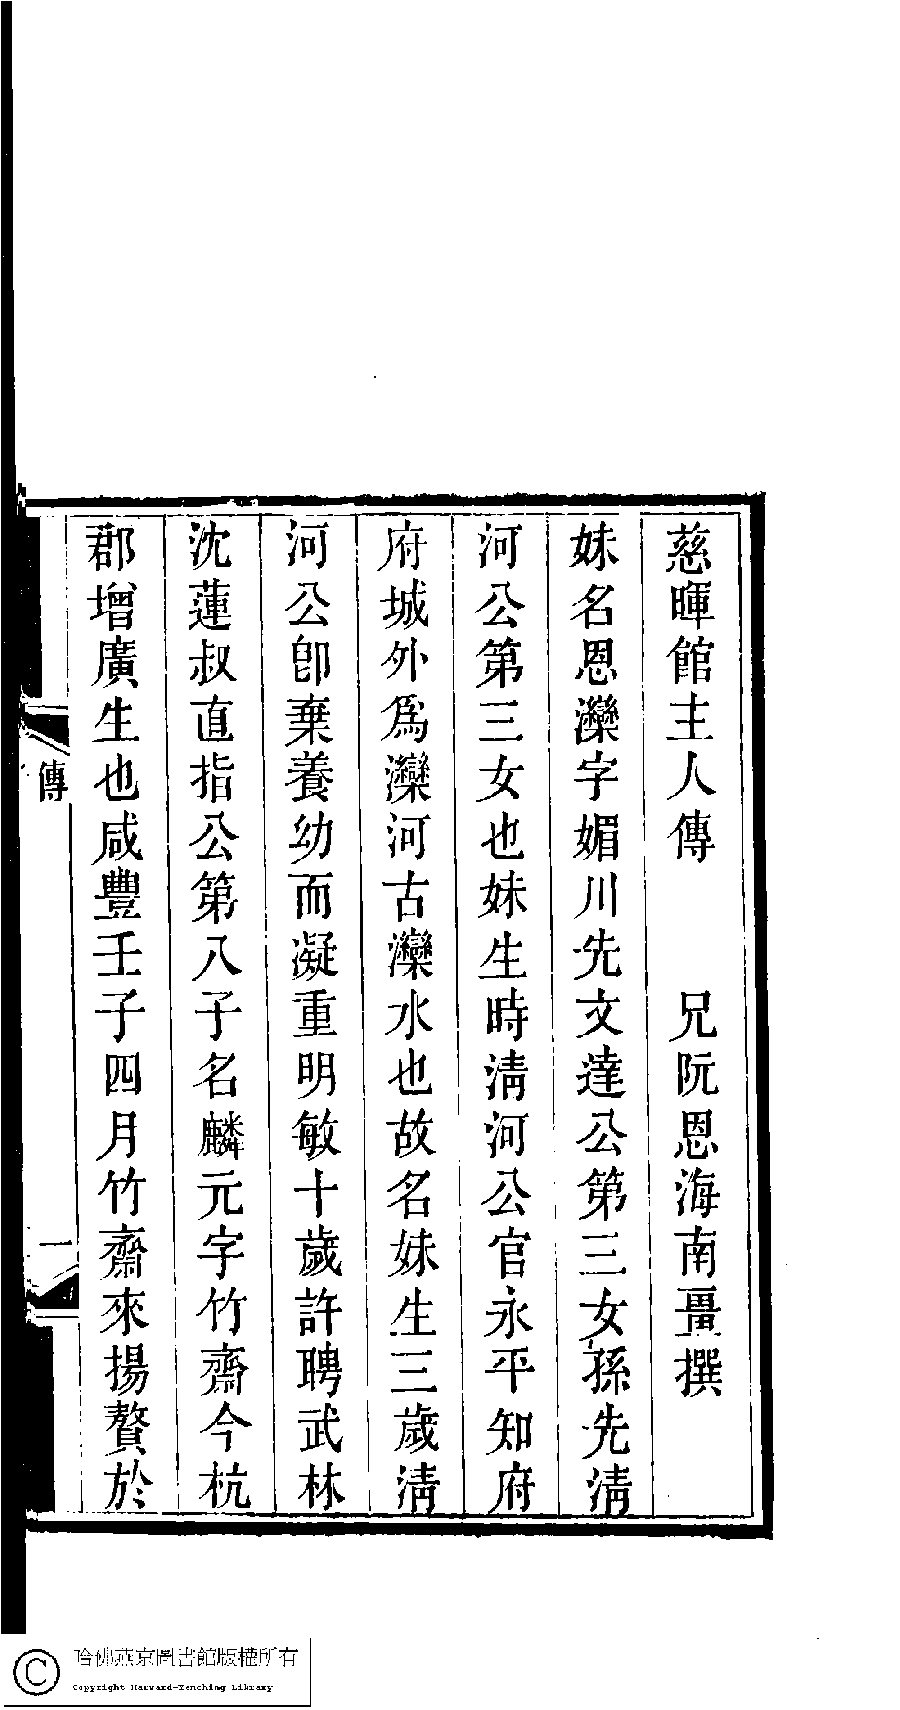 慈暉館主人傳　　兄阮恩海南畺撰
妹名恩灤字媚川先文達公第三女孫先清
河公第三女也妹生時清河公官永平知府
府城外爲灤河古灤水也故名妹生三歲清
河公卽棄養幼而凝重明敏十歲許聘武林
沈蓮叔直指公第八子名麟元字竹齋今杭
郡增廣生也咸豐壬子四月竹齋來揚贅於
傳
一
哈佛燕京圖書館版權所有
Copyright Harvard-Yenching Library